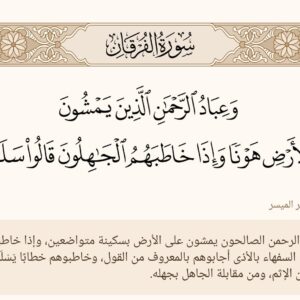 سُورَةُ الفُرْقَانِ
وَعِبَادُ ٱلرَّحْمَٰنِ ٱلَّذِينَ يَمْشُونَ
ٱلْأَرْضِ هَوْنًا وَإِذَا خَاطَبَهُمُ ٱلْجَٰهِلُونَ قَالُوا۟ سَلَ
الميسر
الرحمن الصالحون يمشون على الأرض بسكينة متواضعين، وإذا خاطب
السفهاء بالأذى أجابوهم بالمعروف من القول، وخاطبوهم خطابًا يَسْلَ
الإثم، ومن مقابلة الجاهل بجهله.